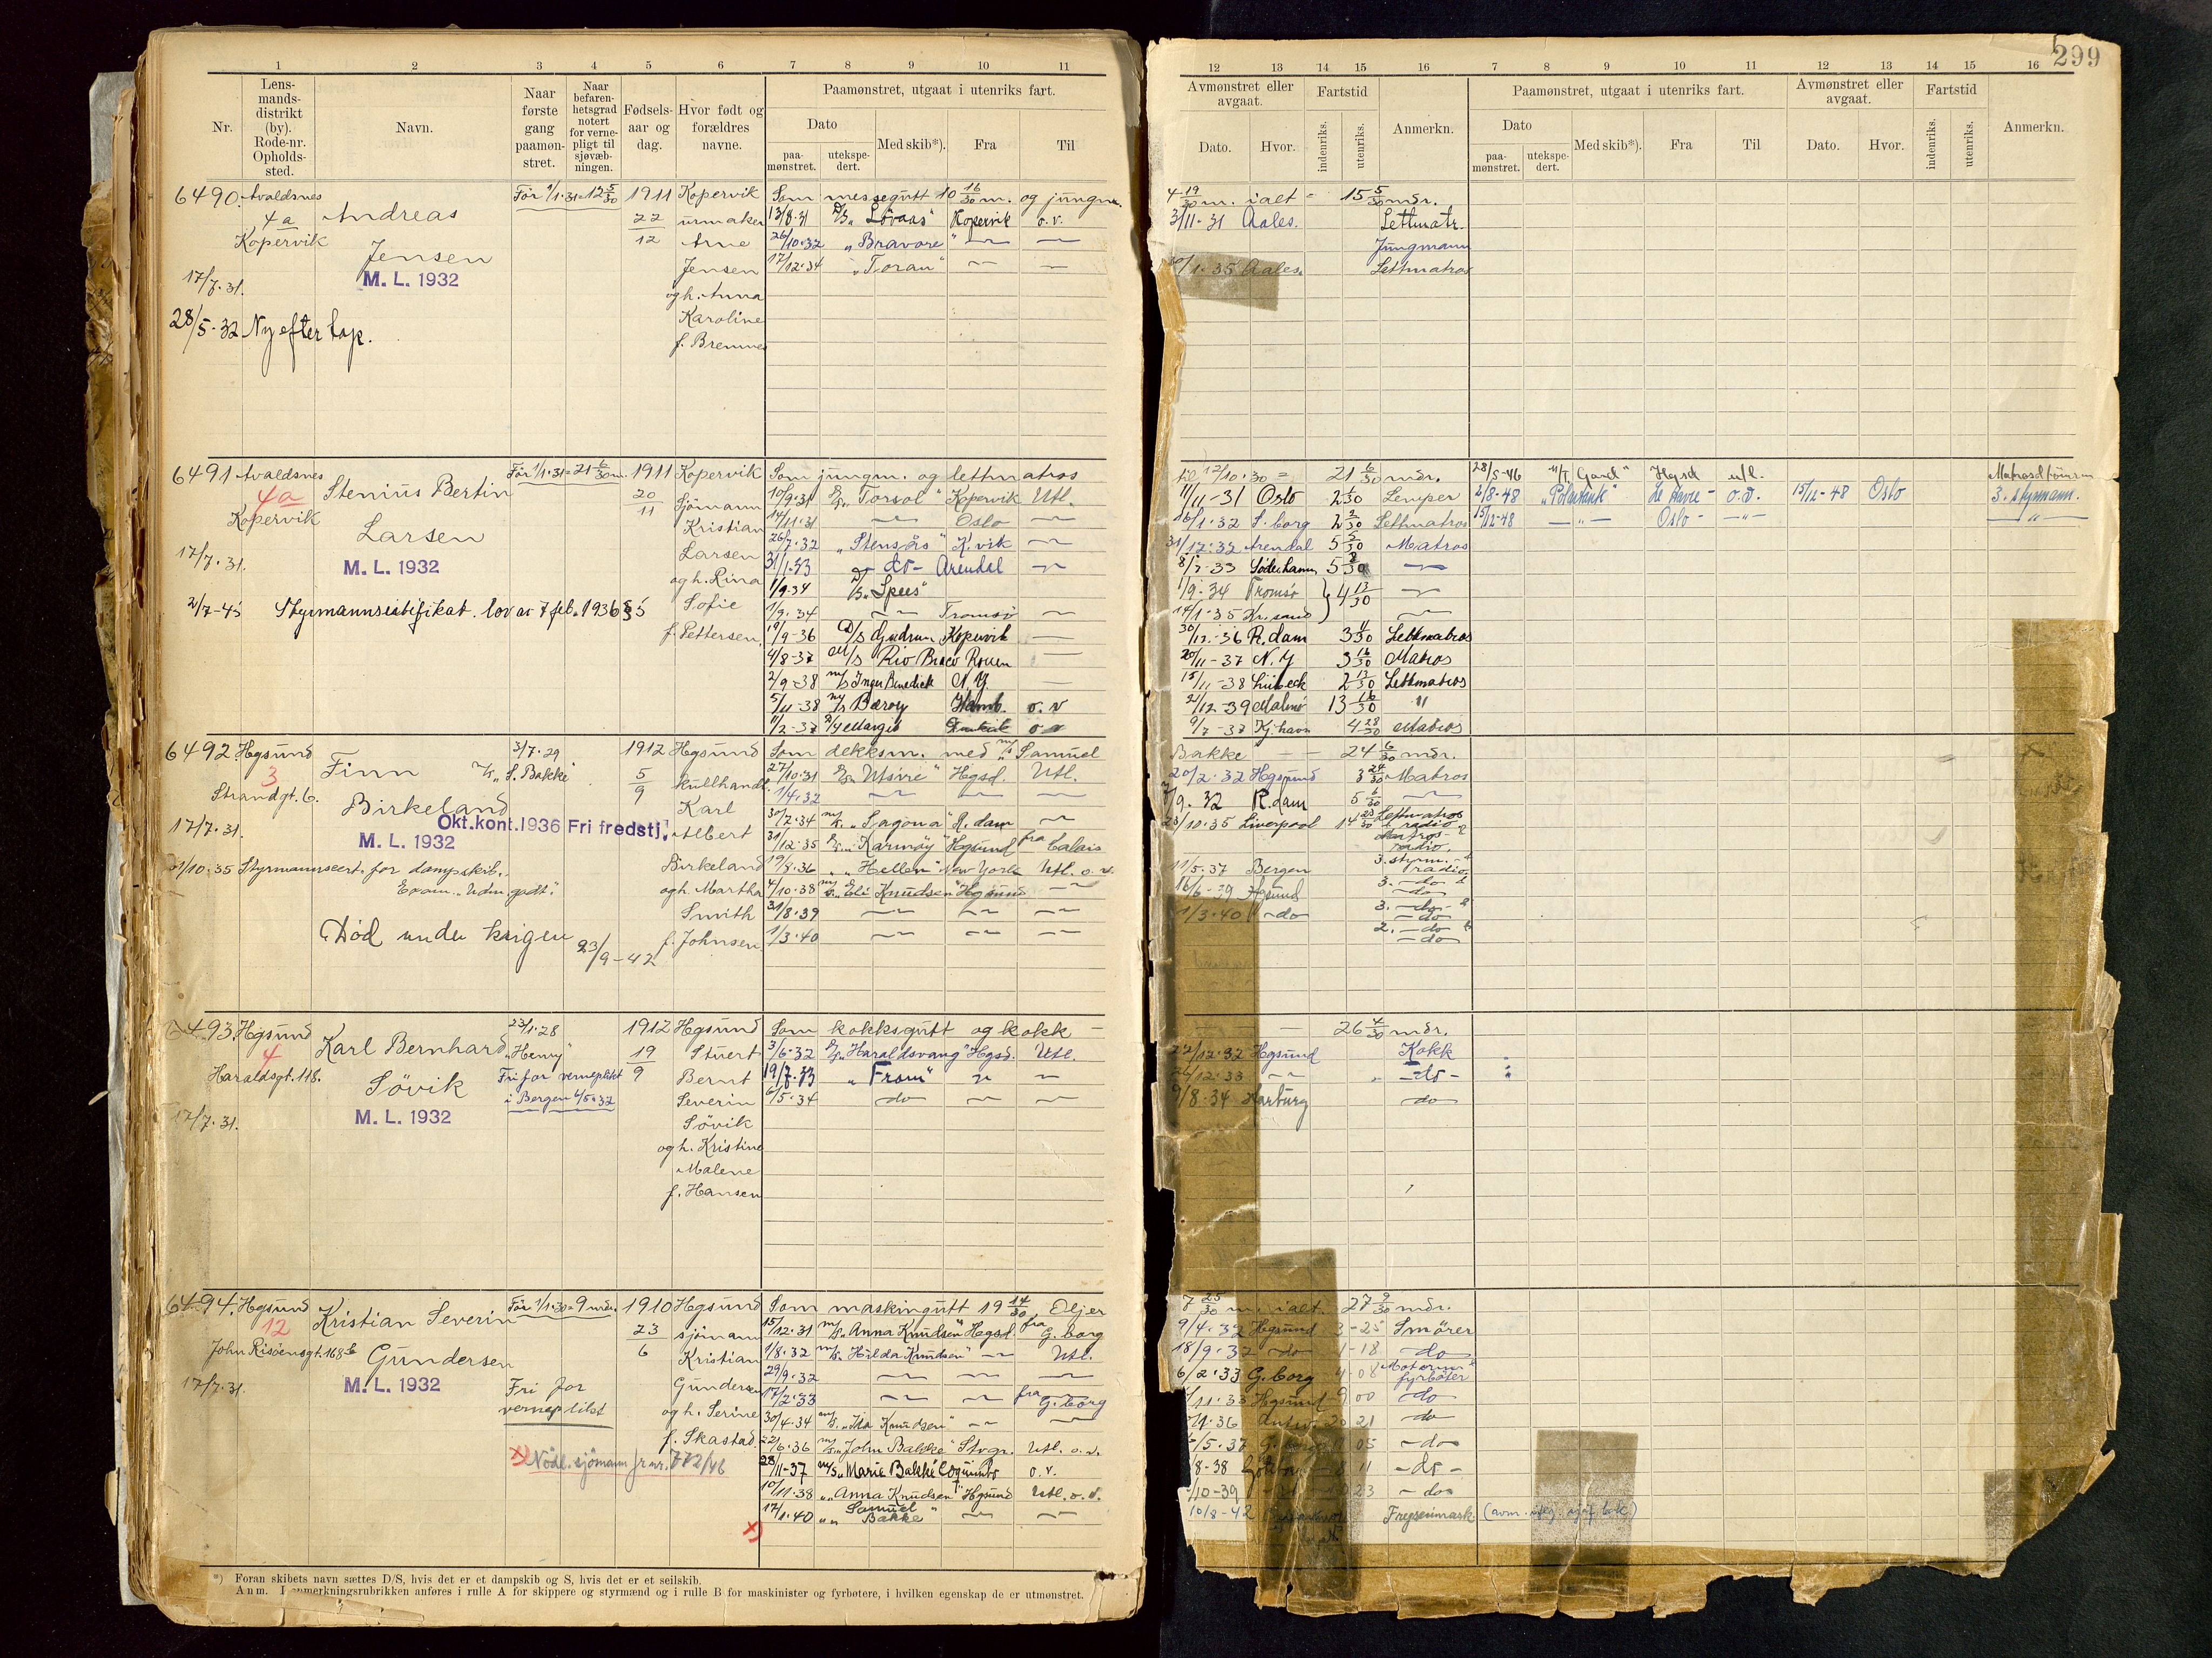 299
1 2 3 4 5 6 7 8 9 10 11
12 13 14 15 16 7 8 9 10 11 12 13 14 15 16
Nr.
Lens-
mands-
distrikt
(by).
Rode-nr.
Opholds-
sted.
Navn.
Naar
første
gang
paamøn-
stret.
Naar
befaren-
hetsgrad
notert
for verne-
pligt til
sjøvæb-
ningen.
Fødsels-
aar og
dag.
Hvor født og
forældres
navne.
Paamønstret, utgaat i utenriks fart.
Dato
paa-
mønstret.
utekspe-
dert.
Med skib*).
Fra
Til
Avmønstret eller
avgaat.
Dato.
Hvor.
Fartstid
indenriks.
utenriks.
Anmerkn.
Paamønstret, utgaat i utenriks fart.
Dato
paa-
mønstret.
utekspe-
dert.
Med skib*).
Fra
Til
Avmønstret eller
avgaat.
Dato.
Hvor.
Fartstid
indenriks.
utenriks.
Anmerkn.
6490. Avaldsnes
4a
Kopervik
17/7.31.
Andreas
Jensen
M. L. 1932
28/5-32 Ny efter tap.
Før 1/1.31 = 12 5/30
1911
22
12
Kopervik
urmaker
Arne
Jensen
og h. Anna
Karoline
f. Bremnes
Som messegutt 10 16/30 m. og jungm. 4 19/30 m. ialt = 15 5/30 mdr.
13/8.31 D/S „Lövaas" Kopervik o.v. 3/11-31 Aales. Lettmatr.
26/10.32 „Bravore" Jungmann
17/12.34 „Toran" 1.35 Aales. Lettmatros
6491 Avaldsnes
4a
Kopervik
17/7.31.
Stenius Bertin
Larsen
M. L. 1932
2/7-45 Styrmannssertifikat. lov av 7 feb. 1936 § 5
Før 1/1.31 = 21 6/30 m.
1911
20
11
Kopervik
Sjömann
Kristian
Larsen
og h. Lina
Sofie
f. Pettersen
Som jungm. og lettmatros til 12/10.30 = 21 6/30 mdr.
10/9.31 „Torsol" Kopervik Utl. 11/11-31 Oslo Lemper
14/11.31 Oslo 16/1.32 S. borg Lettmatros
26/7.32 „Stensås" K.vik 31/12.32 Arendal 5 5/30 Matros
3/1.33 -do- Arendal 8/7-33 Söderhamn
1/9.34 D/S „Spes" 1/9.34 Tromsö 4 13/30
1/9.34 Tromsö 14/1.35 Kr.sand
19/9-36 D/S Gudrun Kopervik 30/12.-36 R.dam 3 11/30 Lettmatros
4/8-37 M/S Rio Bravo Rouen 20/11-37 N.Y 3 16/30 Matros
2/9-38 M/S Inger Benedick N.Y. 15/11-38 Lübeck Lettmatros
5/11-38 M/S Bæroy Hamb. o.v 21/12-39 Malmö 13 16/30 "
11/2-37 Margit o.v 9/7-37 Kj.havn 4 28/30 Matros
28/5-46 M/T „Gard" Hgsd u/l. Matros
2/8-48 „Polartank" Le Havre - o.v. 15/12-48 Oslo 3. styrmann.
15/12-48 Oslo
6492. Hgsund
3
Strandgt. 6.
17/7.31.
Finn
Birkeland
Okt.kont.1936 Fri fredstj.
M. L. 1932
1/10.35 Styrmannscert. for dampskib.
Exam. „Udm. godt."
Död under krigen 23/9-42
3/7.29
„S. Bakke"
1912
5
9
Hgsund
kullhandl.
Karl
Albert
Birkeland
og h. Martha
Smith
f. Johnsen
Som dekksm. med M/S „Samuel Bakke 24 6/30 mdr.
27/10.31 „Utsire" Hgsd. Utl. 20/2.32 Hgsund 3 24/30 Matros
1/4.32 9.32 R.dam 5 6/30
30/7.34 M/S „Sagona" R. dam 23/10.35 Liverpool 14 23/30 Lettmatros & radio
31/12.35 „Karmöy" Hgsund fra Calais Matros - radio.
19/8.36 „Hellen" New York Utl. o. v. 11/5.37 Bergen 3. styrm. - & radio
4/10.38 „Eli Knudsen" Hgsund 16/6-39 Hgsund 3. -do-
31/8.39 1/3.40 -do- 3. -do-
1/3.40 2. -do-
6493. Hgsund
4
Haraldsgt. 118.
17/7.31.
Karl Bernhard
Sövik
M. L. 1932
23/1.28
„Henry"
Fri for verneplikt
i Bergen 4/5.32
1912
19
9
Hgsund
Stuert
Bernt
Severin
Sövik
og h. Kristine
Malene
f. Hansen
Som kokksgutt og kokk - 26 4/30 mdr.
3/6.32 „Haraldsvang" Hgsd. Utl. 22/12.32 Hgsund Kokk
19/7.33 „From" 12.33 -do-
6/5.34 do 9/8.34 Harburg do
6494. Hgsund
12
John Risöensgt. 168 b
17/7.31.
Kristian Severin
Gundersen
M. L. 1932
Før 1/1.30 = 9 mdr.
Fri for
verneplikt
x) Nödl. sjömann fr. nr. 772/46
1910
23
6
Hgsund
sjömann
Kristian
Gundersen
og h. Serine
f. Skastad
Som maskingutt 19 14/30 Oljer 7 25/30 m. ialt. 27 9/30 mdr.
15/12.31 M/S „Anna Knudsen" Hgsd. fra G.borg 9/4.32 Hgsund 3-25 Smörer
1/8.32 M/S „Hilda Knudsen" Utl. 18/9.32 do 1-18 do
29/9.32 6/2.33 G.borg 4-08 Motorm. & fyrböter
17/2.33 fra G.borg 11.33 Hgsund 9 00 do
30/4.34 M/S „Ida Knudsen" 4.36 Antw. 20 21 do
22/6.36 M/S „John Bakke" Stvgr. Utl. o.v. 5.37 05 -do-
28/11-37 M/S „Marie Bakke" o.v. 8-38 11 -do-
10/11.38 „Anna Knudsen" Hgsund Utl. o.v. 10-39 23 -do-
17/1.40 „Samuel Bakke" 10/8-42
x)
*) Foran skibets navn sættes D/S, hvis det er et dampskib og S, hvis det er et seilskib.
Anm. I anmerkningsrubrikken anføres i rulle A for skippere og styrmænd og i rulle B for maskinister og fyrbøtere, i hvilken egenskap de er utmønstret.